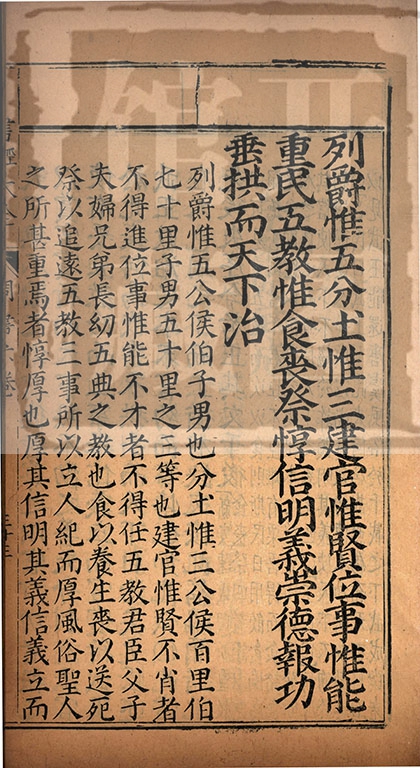 列爵惟五分土惟三建官惟賢位事惟能
重民五教惟食喪祭惇信明義崇德報功
垂拱而天下治
列爵惟五公侯伯子男也分土惟三公侯百里伯
七十里子男五十里之三等也建官惟賢不肖者
不得進位事惟能不才者不得任五教君臣父子
夫婦兄弟長幼五典之教也食以養生喪以送死
祭以追遠五教三事所以立人紀而厚風俗聖人
之所甚重焉者惇厚也厚其信明其義信義立而